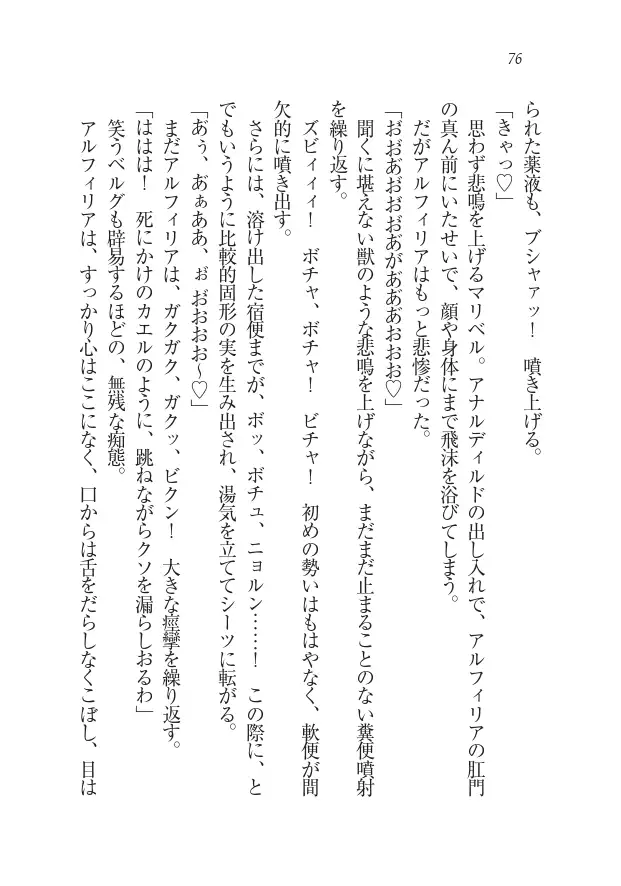 76
られた薬液も、ブシャァッ！　噴き上げる。
「きゃっ♡」
思わず悲鳴を上げるマリベル。アナルディルドの出し入れで、アルフィリアの肛門
の真ん前にいたせいで、顔や身体にまで飛沫を浴びてしまう。
だがアルフィリアはもっと悲惨だった。
「おおあおおおあがあああおおお♡」
聞くに堪えない獣のような悲鳴を上げながら、まだまだ止まることのない糞便噴射
を繰り返す。
ズビィィィ！　ボチャ、ボチャ！　ビチャ！　初めの勢いはもはやなく、軟便が間
欠的に噴き出す。
さらには、溶け出した宿便までが、ボッ、ボチュ、ニョルン……！　この際に、と
でもいうように比較的固形の実を生み出され、湯気を立ててシーツに転がる。
「あ゙ぅ、あ゙ぁああ、ぉ゙お゙おおお～♡」
まだアルフィリアは、ガクガク、ガクッ、ビクン！　大きな痙攣を繰り返す。
「ははは！　死にかけのカエルのように、跳ねながらクソを漏らしおるわ」
笑うベルグも辟易するほどの、無残な痴態。
アルフィリアは、すっかり心はここになく、口からは舌をだらしなくこぼし、目は